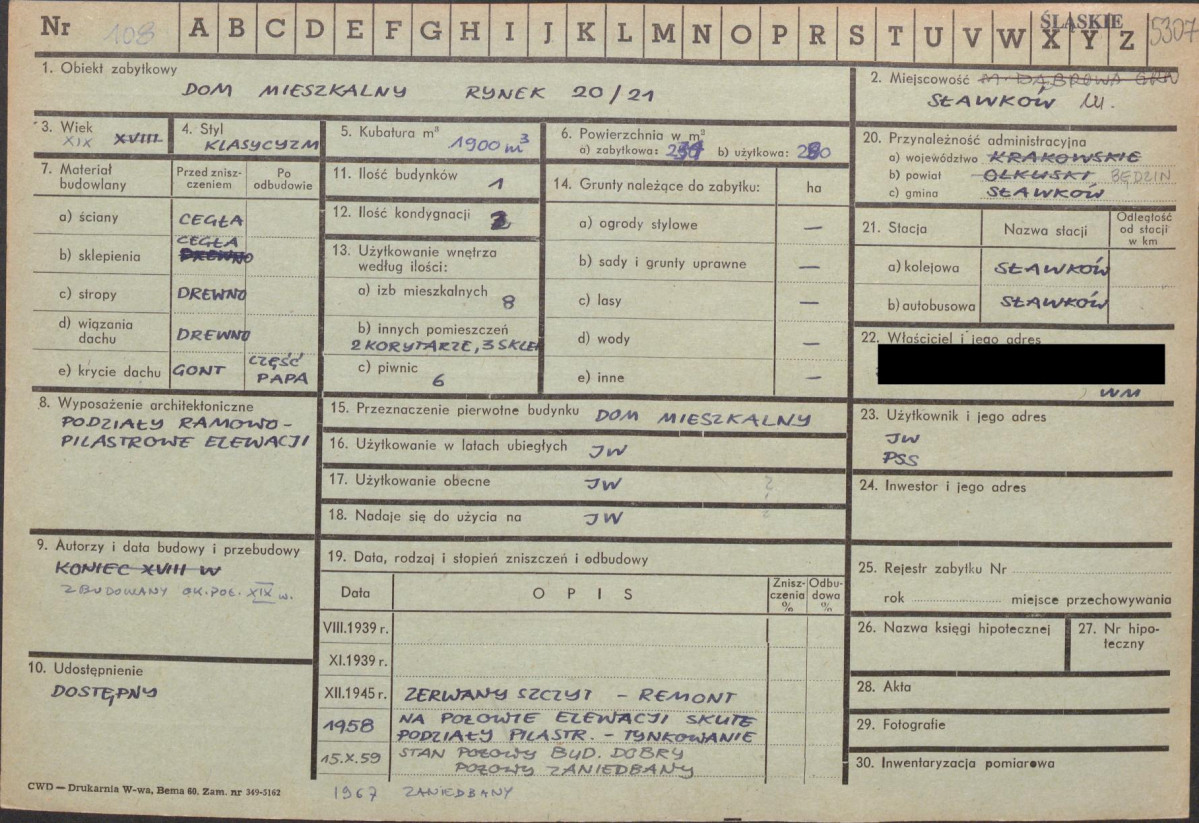 Nr 108 A B C D E F G H I J K L M N O P R S T U V W X Y Z ŚLĄSKIE 5307
1. Obiekt zabytkowy
DOM MIESZKALNY RYNEK 20/21
2. Miejscowość M. DĄBROWA GRN
SŁAWKÓW
3. Wiek
XIX XVIII
4. Styl
KLASYCYZM
5. Kubatura m³
1900 m³
6. Powierzchnia w m²
a) zabytkowa: b) użytkowa:
7. Materiał budowlany
Przed zniszczeniem
Po odbudowie
a) ściany CEGŁA
b) sklepienia CEGŁA DREWNO
c) stropy DREWNO
d) wiązania dachu DREWNO
e) krycie dachu GONT CZĘŚĆ PAPA
8. Wyposażenie architektoniczne
PODZIAŁY RAMOWO-
PILASTROWE ELEWACJI
9. Autorzy i data budowy i przebudowy
KONIEC XVIII W
ZBUDOWANY OK. POŁ. XIX w.
10. Udostępnienie
DOSTĘPNY
11. Ilość budynków 1
12. Ilość kondygnacji
13. Użytkowanie wnętrza
według ilości:
a) izb mieszkalnych 8
b) innych pomieszczeń
2 KORYTARZE, 3 SKLEP
c) piwnic
6
14. Grunty należące do zabytku: ha
a) ogrody stylowe —
b) sady i grunty uprawne —
c) lasy —
d) wody —
e) inne —
15. Przeznaczenie pierwotne budynku DOM MIESZKALNY
16. Użytkowanie w latach ubiegłych JW
17. Użytkowanie obecne JW ?
18. Nadaje się do użycia na JW ?
19. Data, rodzaj i stopień zniszczeń i odbudowy
Data OPIS Zniszczenia % Odbudowa %
VIII.1939 r.
XI.1939 r.
XII.1945 r. ZERWANY SZCZYT – REMONT
1958 NA POŁOWIE ELEWACJI SKUTE
PODZIAŁY PILASTR. – TYNKOWANIE
15.X.59 STAN POŁOWY BUD. DOBRY
POŁOWY ZANIEDBANY
1967 ZANIEDBANY
20. Przynależność administracyjna
a) województwo KRAKOWSKIE
b) powiat OLKUSKI BĘDZIN
c) gmina SŁAWKÓW
21. Stacja Nazwa stacji Odległość od stacji w km
a) kolejowa SŁAWKÓW
b) autobusowa SŁAWKÓW
22. Właściciel i jego adres
WM
23. Użytkownik i jego adres
JW
PSS
24. Inwestor i jego adres
25. Rejestr zabytku Nr
rok miejsce przechowywania
26. Nazwa księgi hipotecznej
27. Nr hipoteczny
28. Akta
29. Fotografie
30. Inwentaryzacja pomiarowa
CWD — Drukarnia W-wa, Bema 60. Zam. nr 349-5162